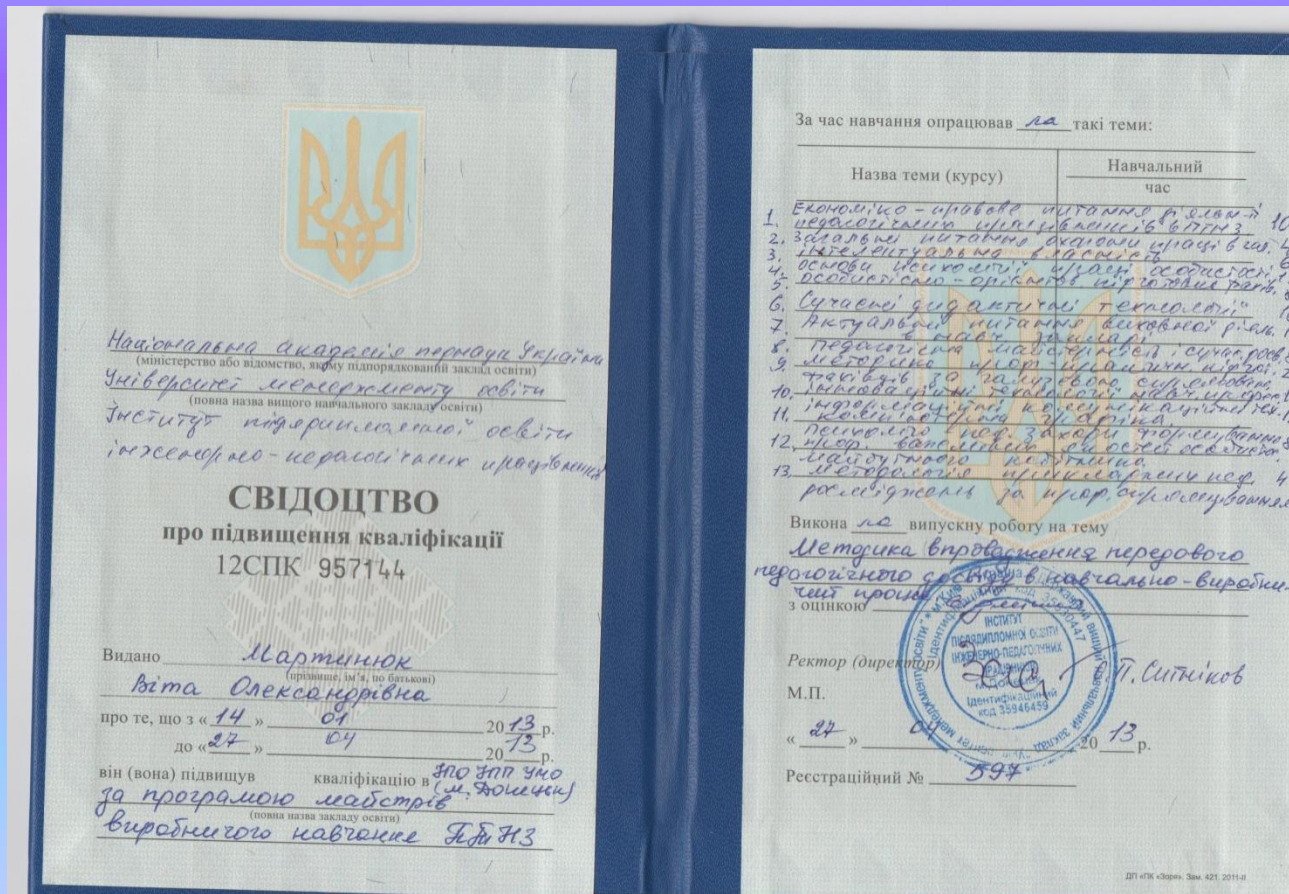 Національна академія пед наук України
(міністерство або відомство, якому підпорядкований заклад освіти)
Університет менеджменту освіти
(повна назва вищого навчального закладу освіти)
Інститут післядипломної освіти
інженерно-педагогічних працівників
СВІДОЦТВО
про підвищення кваліфікації
12СПК 957144
Видано Мартинюк
(прізвище, ім'я, по батькові)
Віта Олександрівна
про те, що з « 14 » 01 20 13 р.
до « 27 » 04 20 13 р.
він (вона) підвищув кваліфікацію в ІПО ІПП УМО
(м. Донецьк)
за програмою майстрів
(повна назва закладу освіти)
виробничого навчання
За час навчання опрацював ла такі теми:
Назва теми (курсу) Навчальний
час
1. Економіко-правове питання діяльн-ті 10
педагогічних працівників в ПТНЗ
2. Загальні питання охорони праці в гал. 4
3. Інтелектуальна власність 6
4. Основи психології праці особистості
5. особистісно-орієнтов. підготовка
6. Сучасні дидактичні технології
7. Актуальні питання виховної діял.
в навч. закладі
8. Педагогічна майстерність і сучас. досв.
9. Методика проф-практичн. підгот.
фахівців за галузевою спрямован.
10. Інноваційні технології навч.
інформаційні комунікаційні тех.
11. графіка.
12. проф. важливих якостей особист.
майбутнього
13. Методологія прикладних пед. 4
досліджень за проф. спрямуванням
Викона ла випускну роботу на тему
Методика впровадження передового
педагогічного досвіду в навчально-виробни-
чий процес
з оцінкою
ІНСТИТУТ
ПІСЛЯДИПЛОМНОЇ ОСВІТИ
ІНЖЕНЕРНО-ПЕДАГОГІЧНИХ
ПРАЦІВНИКІВ
Ідентифікаційний
код 35946459
Ректор (директор) П. Ситніков
М.П.
« 27 » 04 20 13 р.
Реєстраційний № 597
ДП «ПК «Зоря». Зам. 421. 2011-ІІ